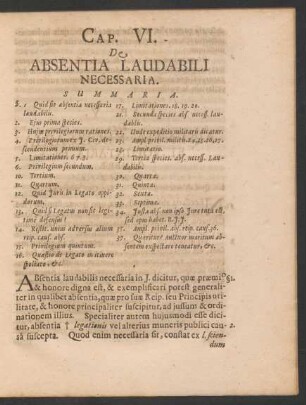 CAP. VI.
DE
ABSENTIA LAUDABILI
NECESSARIA.
SUMMARIA.
§. 1. Quid sit absentia necessaria
laudabilis.
2. Ejus prima species.
3. Hujus privilegiorum rationes.
5. Limitationes. 6. 7. 8.
9. Privilegium secundum.
10. Tertium.
11. Quartum.
12. Quid Juris in Legato
13. Quid si Legatus non sit legi-
time absens?
14. Restit. unius adversus alium
reip. caus. abs.
15. Privilegium quintum.
16. Quasdo de Legato in itinere
spoliato: &c.
17. Limitationes. 18. 19. 20.
21. Secunda species abs. necess. lau-
dabilis.
22. Unde expeditio militaris dicatur.
28. Limitatio.
29. Tertia species abs. necess. Lau-
dabilis.
30. Quarta.
31. Quinta.
32. Sexta.
33. Septima.
36. Ampl. privil. abs. reip. caus.
37. Quæritur an uxor maritum ab-
sentem exspectare teneatur, &c.
ABsentia laudabilis necessaria in J. dicitur, quæ præmio §1.
& honore digna est, & exemplificari potest generali-
ter in qualibet absentia, quæ pro sua Reip. seu Principis uti-
litate, & honore principaliter suscipitur, ad jussum & ordi-
nationem illius. Specialiter autem hujusmodi esse dici-
tur, absentia † legationis vel alterius muneris publici cau- 2.
sâ suscepta. Quod enim necessaria sit, constat ex l. scien-
dum